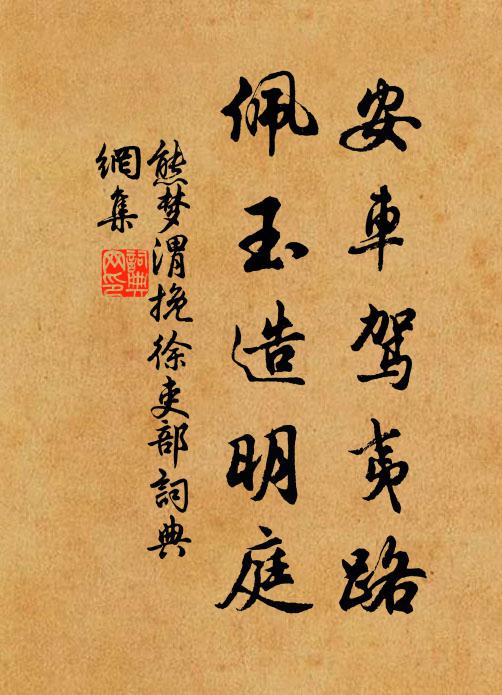 安車駕夷路
佩玉造明庭
熊梦渭挽徐吏部詞典
網集
詞典网印